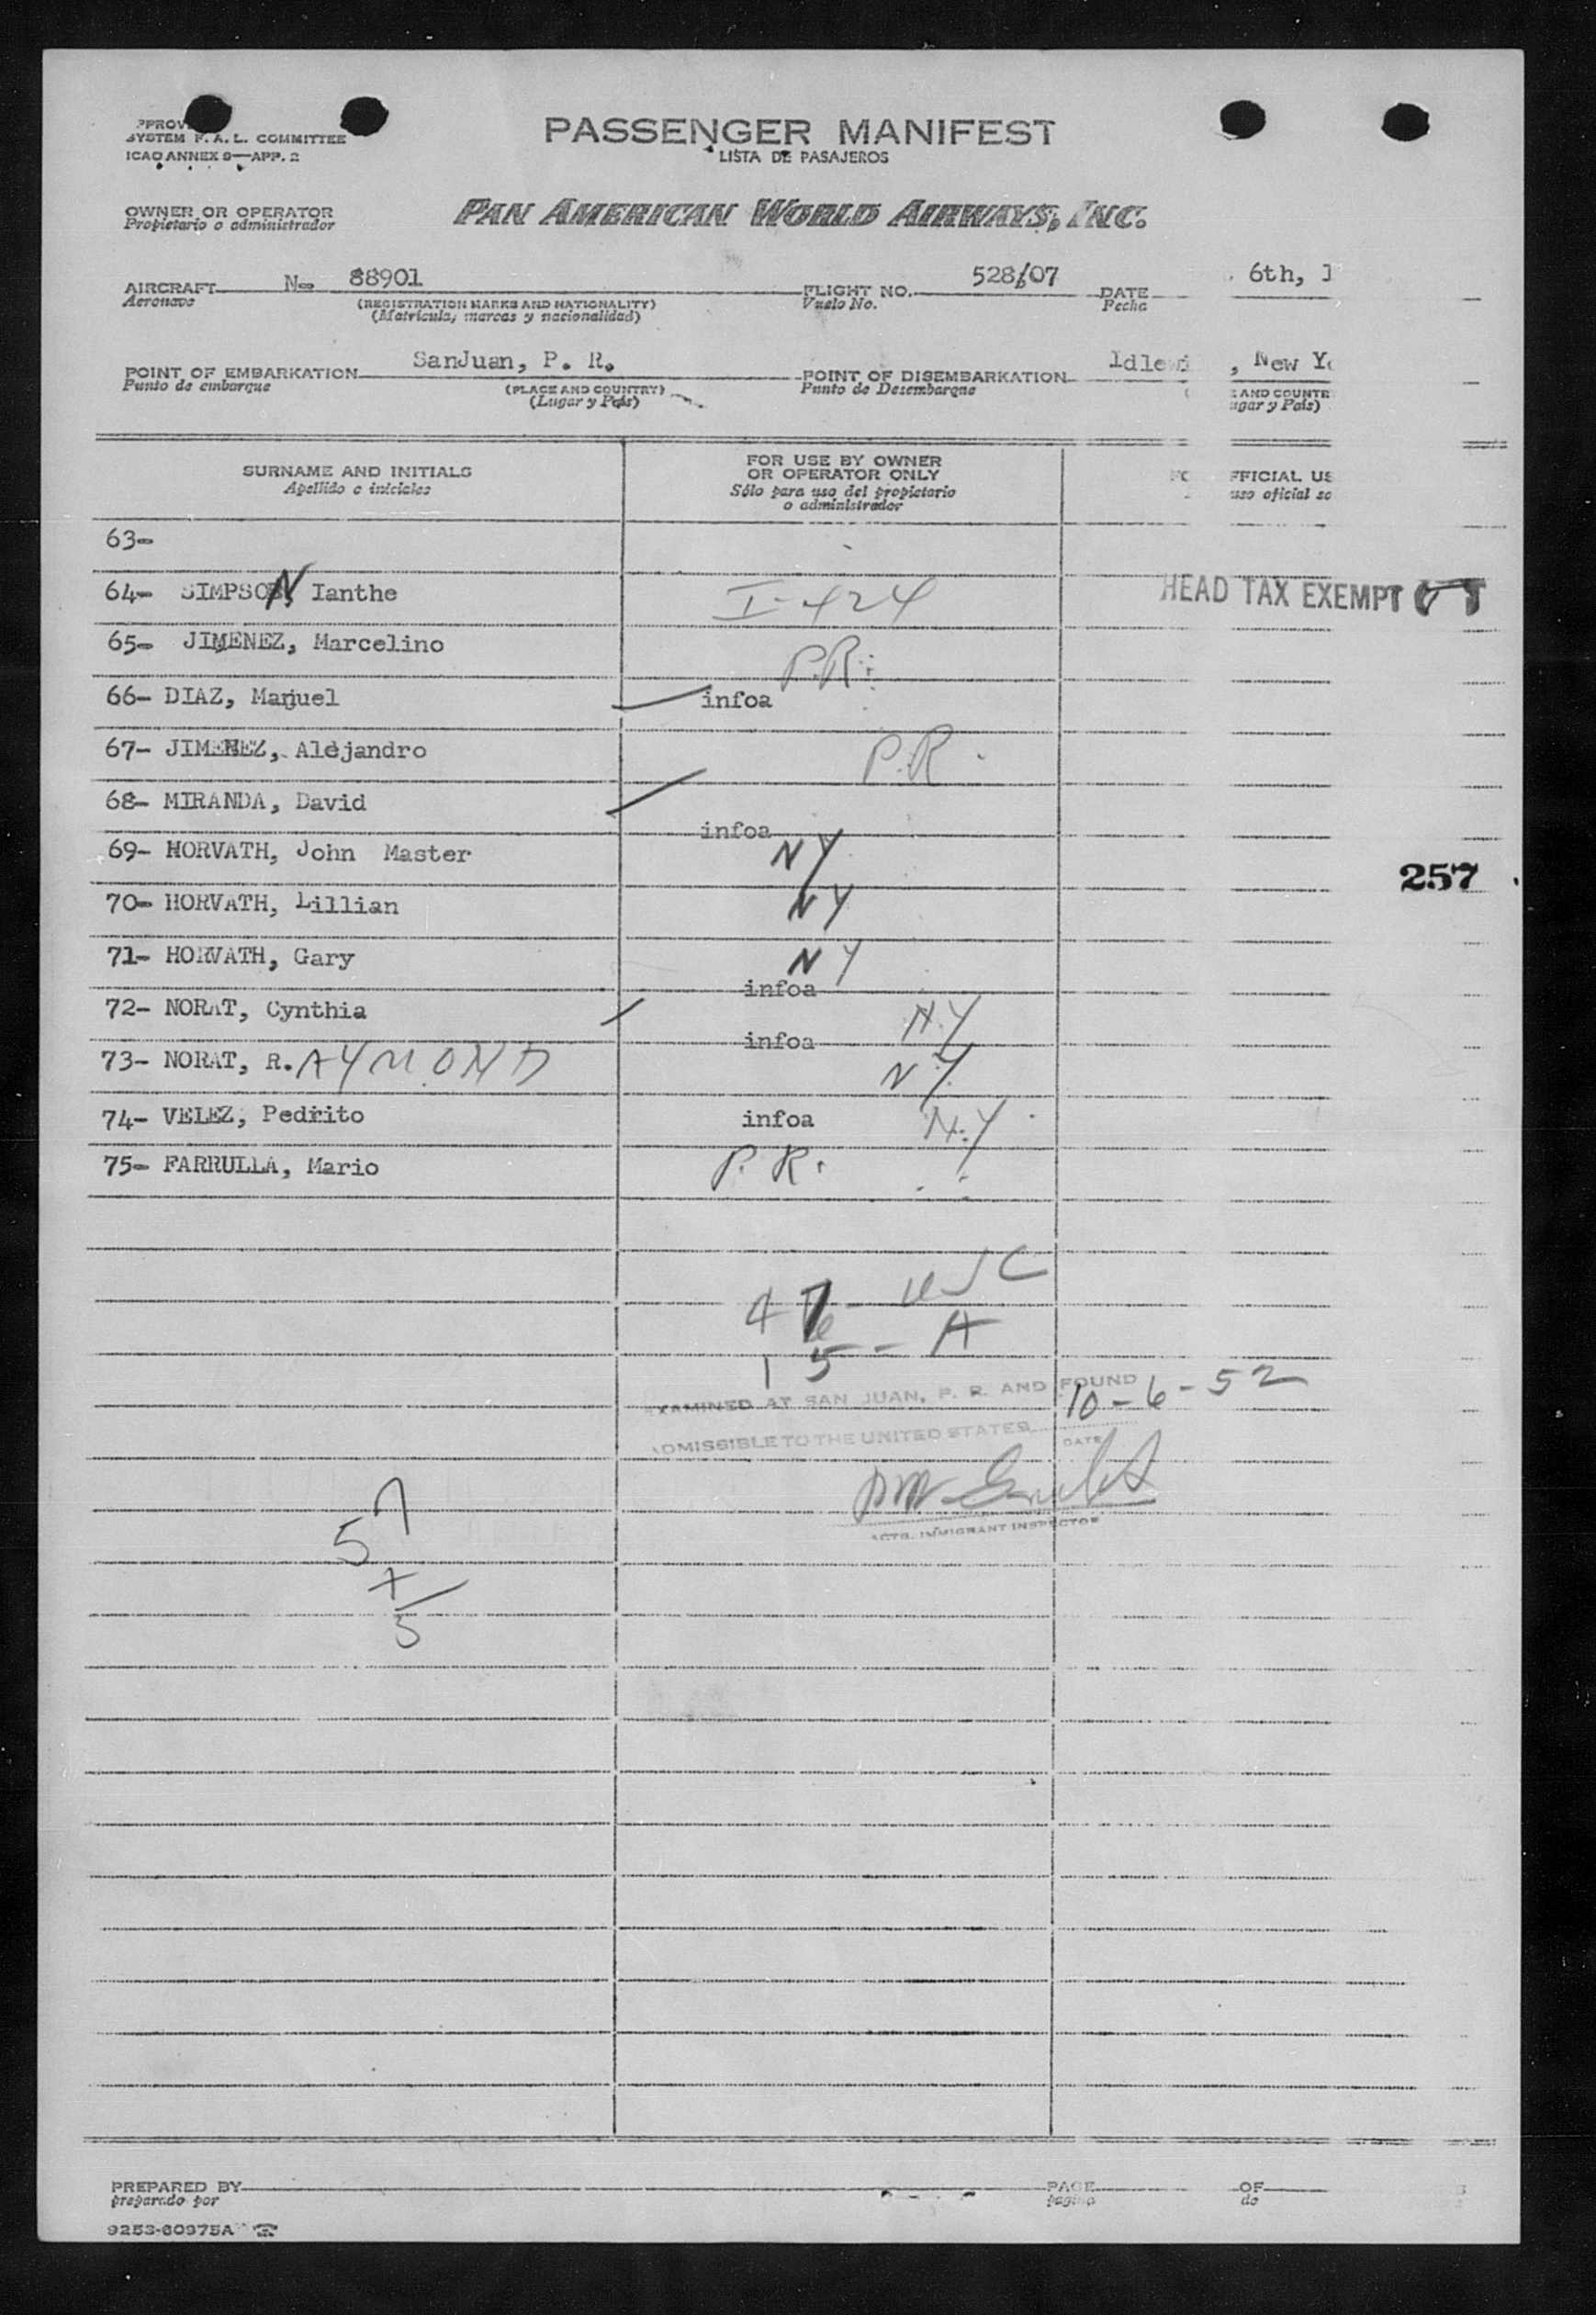 SYSTEM F. A. L. COMMITTEE
ICAO ANNEX 9—APP. 2
PASSENGER MANIFEST
LISTA DE PASAJEROS
OWNER OR OPERATOR
Propietario o administrador
PAN AMERICAN WORLD AIRWAYS, INC.
AIRCRAFT N— 88901 FLIGHT NO. 528/07 DATE 6th,
Aeronave (REGISTRATION MARKS AND NATIONALITY) Vuelo No. Fecha
(Matrícula, marcas y nacionalidad)
POINT OF EMBARKATION SanJuan, P. R. POINT OF DISEMBARKATION , New
Punto de embarque (PLACE AND COUNTRY) Punto de Desembarque AND
(Lugar y País) y País)
SURNAME AND INITIALS
Apellido e iniciales
FOR USE BY OWNER
OR OPERATOR ONLY
Sólo para uso del propietario
o administrador
uso oficial
63-
64- SIMPSON, Ianthe I-424 HEAD TAX EXEMPT
65- JIMENEZ, Marcelino P.R.
66- DIAZ, Manuel infoa
67- JIMENEZ, Alejandro P.R.
68- MIRANDA, David infoa
69- HORVATH, John Master NY
257
70- HORVATH, Lillian NY
71- HORVATH, Gary NY
72- NORAT, Cynthia infoa N.Y
73- NORAT, R.AYMOND infoa N.Y.
74- VELEZ, Pedrito infoa N.Y
75- FARRULLA, Mario P.R.
47 - USC
15 - A
EXAMINED AT SAN JUAN, P. R. AND FOUND 10-6-52
ADMISSIBLE TO THE UNITED STATES DATE
ACTG. IMMIGRANT INSPECTOR
57
+
5
PREPARED BY PAGE OF
preparado por pagina de
9253-60975A